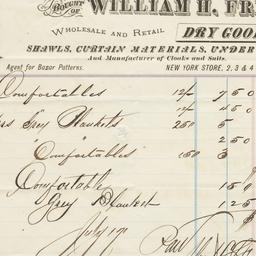 BOUGHT OF WILLIAM H. FR
WHOLESALE AND RETAIL DRY GOO
SHAWLS, CURTAIN MATERIALS, UNDER
And Manufacturer of Cloaks and Suits.
Agent for Bazar Patterns. NEW YORK STORE, 2, 3 & 4
Comfortables 12/- 7 50
" 12/- 4 50
Grey Blankets 250 5
" " 2 50
" Comfortables 150 3
Comfortable 1 50
Grey Blanket 1 25
$
July 17